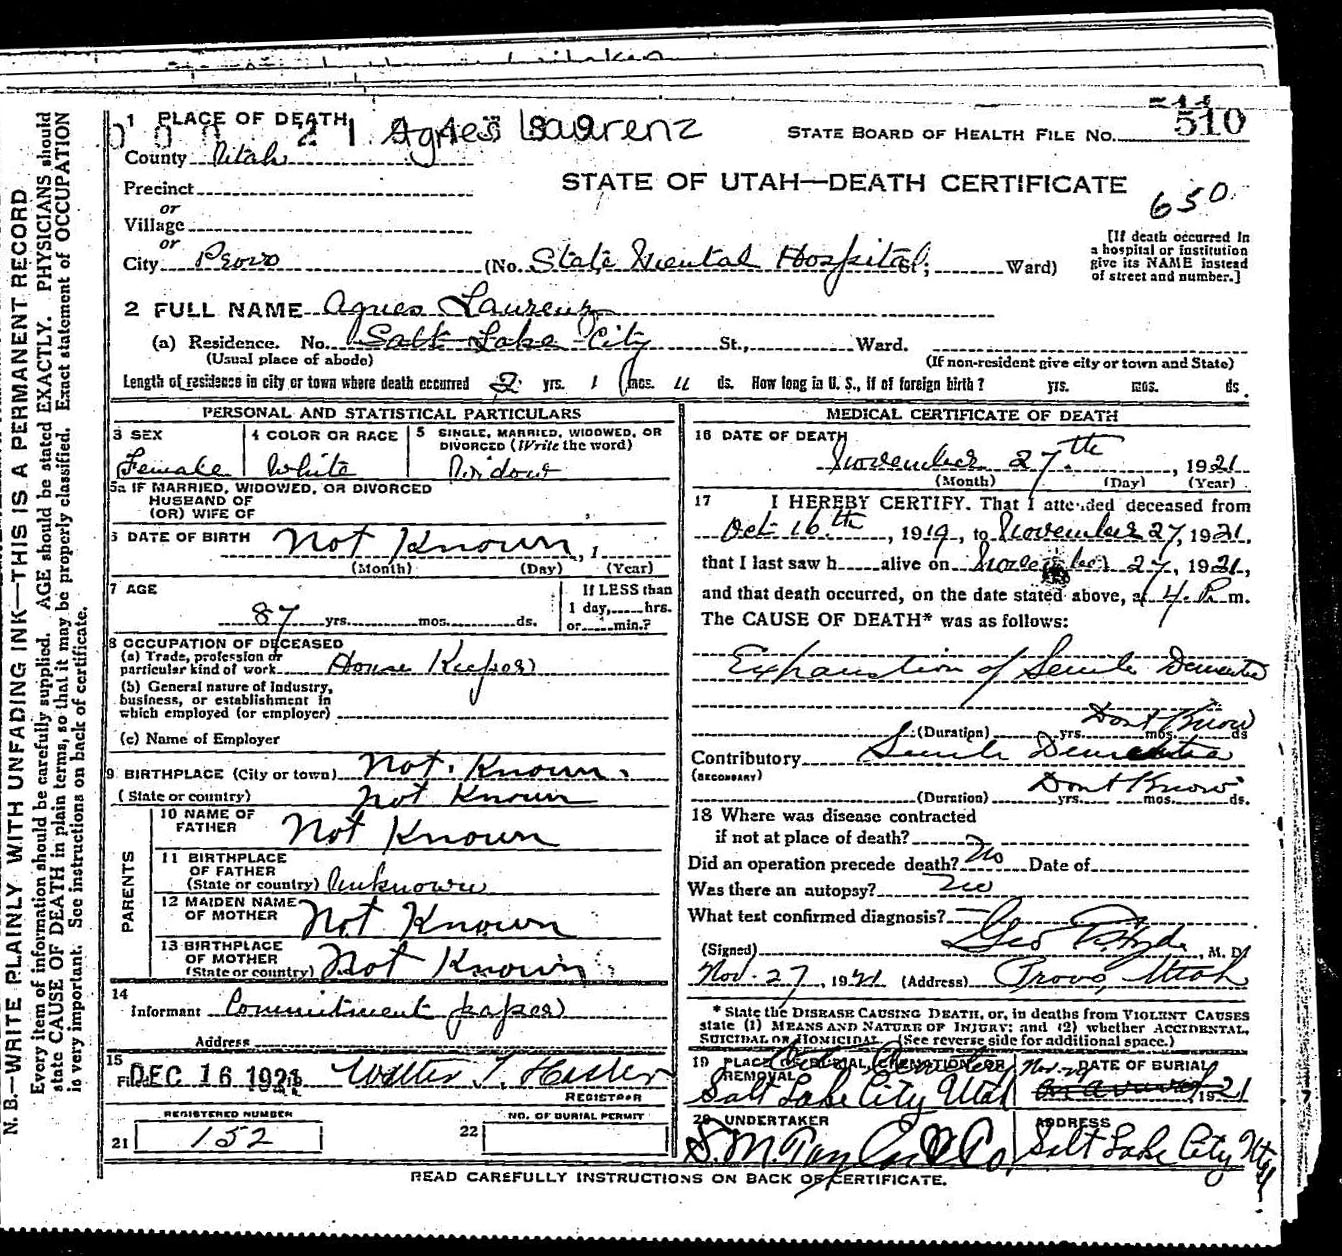 1 PLACE OF DEARTH
Agnes Laurenz
STATE BOARD OF HEALTH FILE NO. 510
County Utah
STATE OF UTAH—DEATH CERTIFICATE
650
Precinct
or
Village
or
City Provo (No. State Mental Hospital St.; Ward)
[If death occurred in
a hospital or institution
give its NAME instead
of street and number.]
2 FULL NAME Agnes Laurenz
(a) Residence. No. Salt Lake City St., Ward.
(Usual place of abode) (If non-resident give city or town and State)
Length of residence in city or town where death occurred 2 yrs. 1 mos. 11 ds. How long in U. S., if of foreign birth? yrs. mos. ds.
PERSONAL AND STATISTICAL PARTICULARS
3 SEX Female
4 COLOR OR RACE White
5 SINGLE, MARRIED, WIDOWED, OR
DIVORCED (Write the word)
5a IF MARRIED, WIDOWED, OR DIVORCED
HUSBAND OF
(OR) WIFE OF
6 DATE OF BIRTH Not Known, 1
(Month) (Day) (Year)
7 AGE
87 yrs. mos. ds.
If LESS than
1 day, hrs.
or min.?
8 OCCUPATION OF DECEASED
(a) Trade, profession or
particular kind of work House Keeper
(b) General nature of industry,
business, or establishment in
which employed (or employer)
(c) Name of Employer
9 BIRTHPLACE (City or town) Not Known.
(State or country) Not Known
PARENTS
10 NAME OF
FATHER Not Known
11 BIRTHPLACE
OF FATHER
(State or country) Unknown
12 MAIDEN NAME
OF MOTHER Not Known
13 BIRTHPLACE
OF MOTHER
(State or country) Not Known
14
Informant Commitment paper
Address
15
DEC 16 1921 Walter T. Hasler
REGISTRAR
REGISTERED NUMBER
21 152
NO. OF BURIAL PERMIT
22
MEDICAL CERTIFICATE OF DEATH
16 DATE OF DEATH
November 27th, 1921
(Month) (Day) (Year)
17 I HEREBY CERTIFY. That I attended deceased from
Oct 16th, 1919, to November 27, 1921,
that I last saw h alive on November 27, 1921,
and that death occurred, on the date stated above, at 4. P. m.
The CAUSE OF DEATH* was as follows:
Exhaustion of Senile Dementia
Dont Know
(Duration) yrs. mos. ds
Contributory Senile Dementia
(SECONDARY)
Dont Know
(Duration) yrs. mos. ds.
18 Where was disease contracted
if not at place of death?
Did an operation precede death? No Date of
Was there an autopsy? No
What test confirmed diagnosis?
(Signed) Geo E Hyde, M. D.
Nov. 27, 1921 (Address) Provo, Utah
* State the DISEASE CAUSING DEATH, or, in deaths from VIOLENT CAUSES
state (1) MEANS AND NATURE OF INJURY; and (2) whether ACCIDENTAL,
SUICIDAL OR HOMICIDAL. (See reverse side for additional space.)
19 PLACE OF BURIAL, CREMATION OR
REMOVAL
Salt Lake City Utah
DATE OF BURIAL
1921
20 UNDERTAKER
S. M. Taylor & Co.
ADDRESS
Salt Lake City Utah
READ CAREFULLY INSTRUCTIONS ON BACK OF CERTIFICATE.
N. B.—WRITE PLAINLY WITH UNFADING INK—THIS IS A PERMANENT RECORD
Every item of information should be carefully supplied. AGE should be stated EXACTLY. PHYSICIANS should
state CAUSE OF DEATH in plain terms, so that it may be properly classified. Exact statement of OCCUPATION
is very important. See instructions on back of certificate.